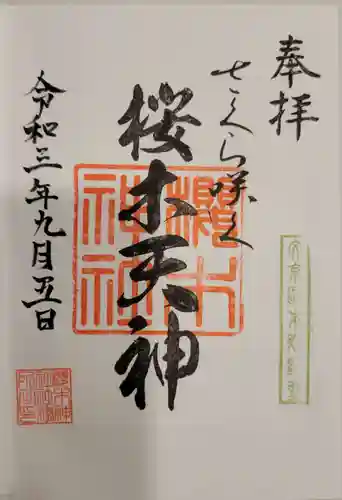 奉拝
さくら咲く
櫻木神社
桜木天神
令和三年九月五日